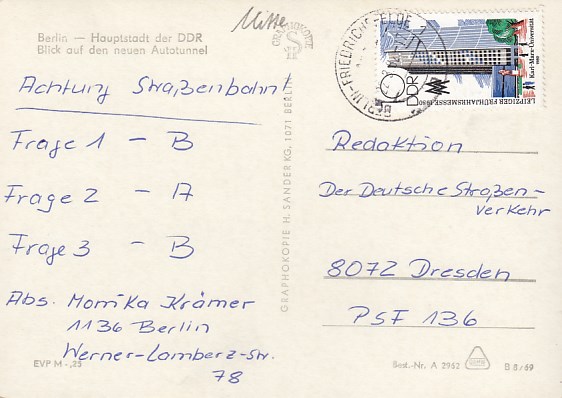 Mitte
Berlin — Hauptstadt der DDR
Blick auf den neuen Autotunnel
Achtung Straßenbahn!
Frage 1 - B
Frage 2 - A
Frage 3 - B
Abs. Monika Krämer
1136 Berlin
Werner-Lamberz-Str.
78
EVP M -,25
GRAPHOKOPIE
GRAPHOKOPIE H. SANDER KG, 1071 BERLIN
BERLIN-FRIEDRICHSFELDE 1
DDR
LEIPZIGER FRÜHJAHRSMESSE 1980
Karl-Marx-Universität
Redaktion
Der Deutsche Straßen-
verkehr
8072 Dresden
PSF 136
Best.-Nr. A 2962
B 8/69